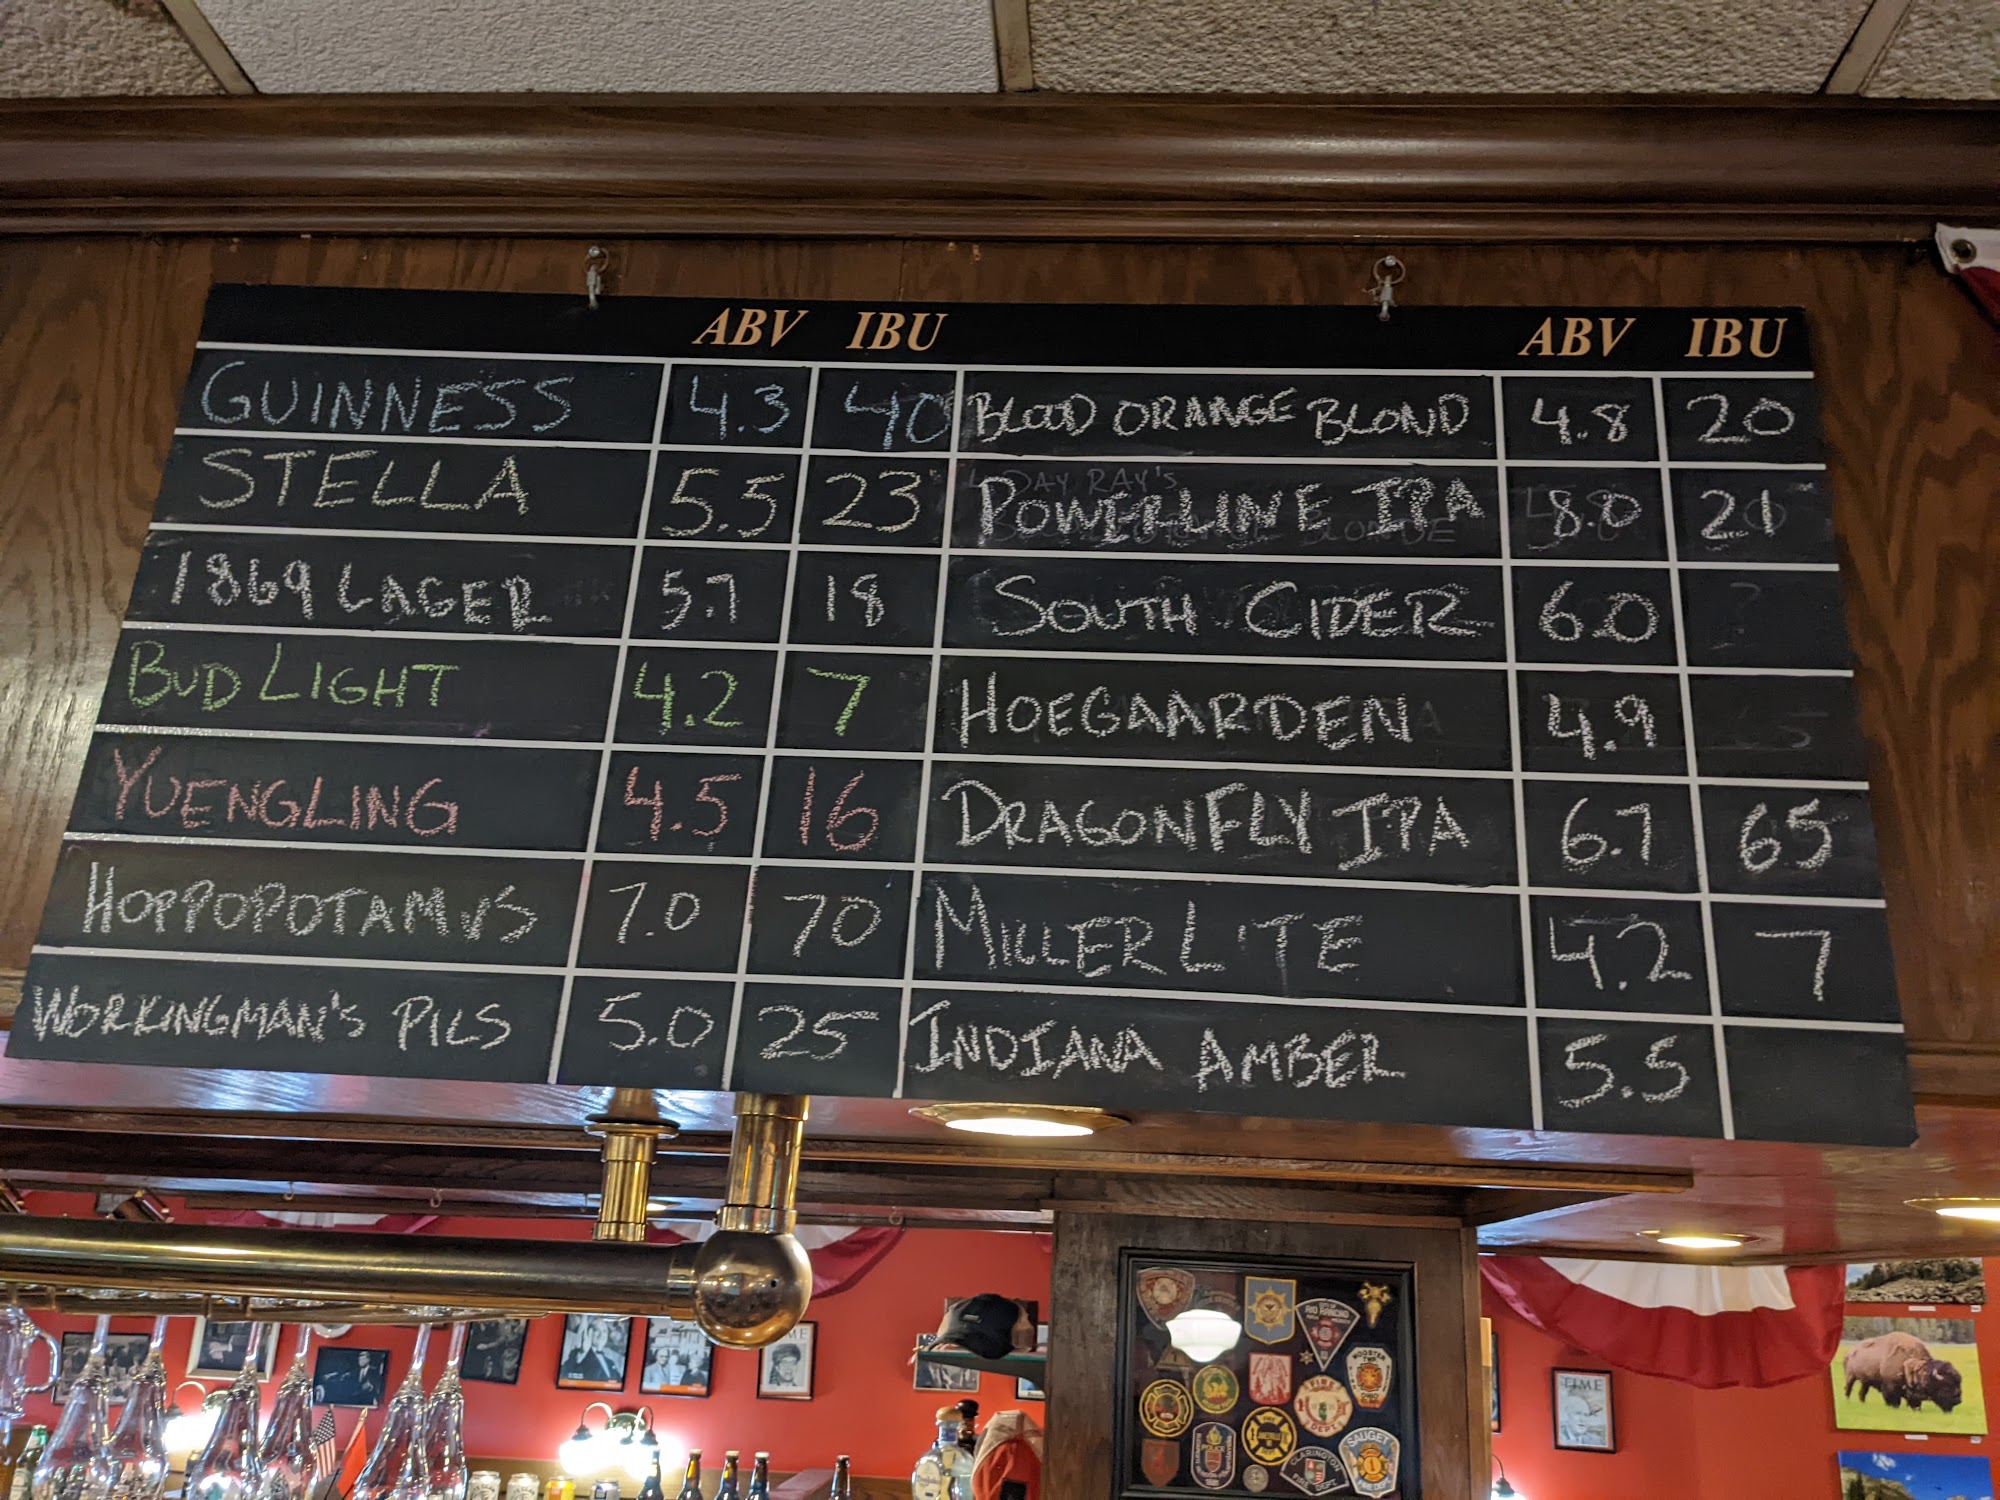 ABV IBU ABV IBU
GUINNESS 4.3 40 BLOOD ORANGE BLOND 4.8 20
STELLA 5.5 23 POWERLINE IPA 8.0 21
1869 LAGER 5.7 18 SOUTH CIDER 6.0
BUD LIGHT 4.2 7 HOEGAARDEN 4.9
YUENGLING 4.5 16 DRAGONFLY IPA 6.7 65
HOPPOPOTAMUS 7.0 70 MILLER LITE 4.2 7
WORKINGMAN'S PILS 5.0 25 INDIANA AMBER 5.5
TIME
RIO RANCHO
WOOSTER
TWP
FIRE
DEPT
POLICE
SAUGET
FIRE DEPT
CLARINGTON
FIRE DEPT.
TIME